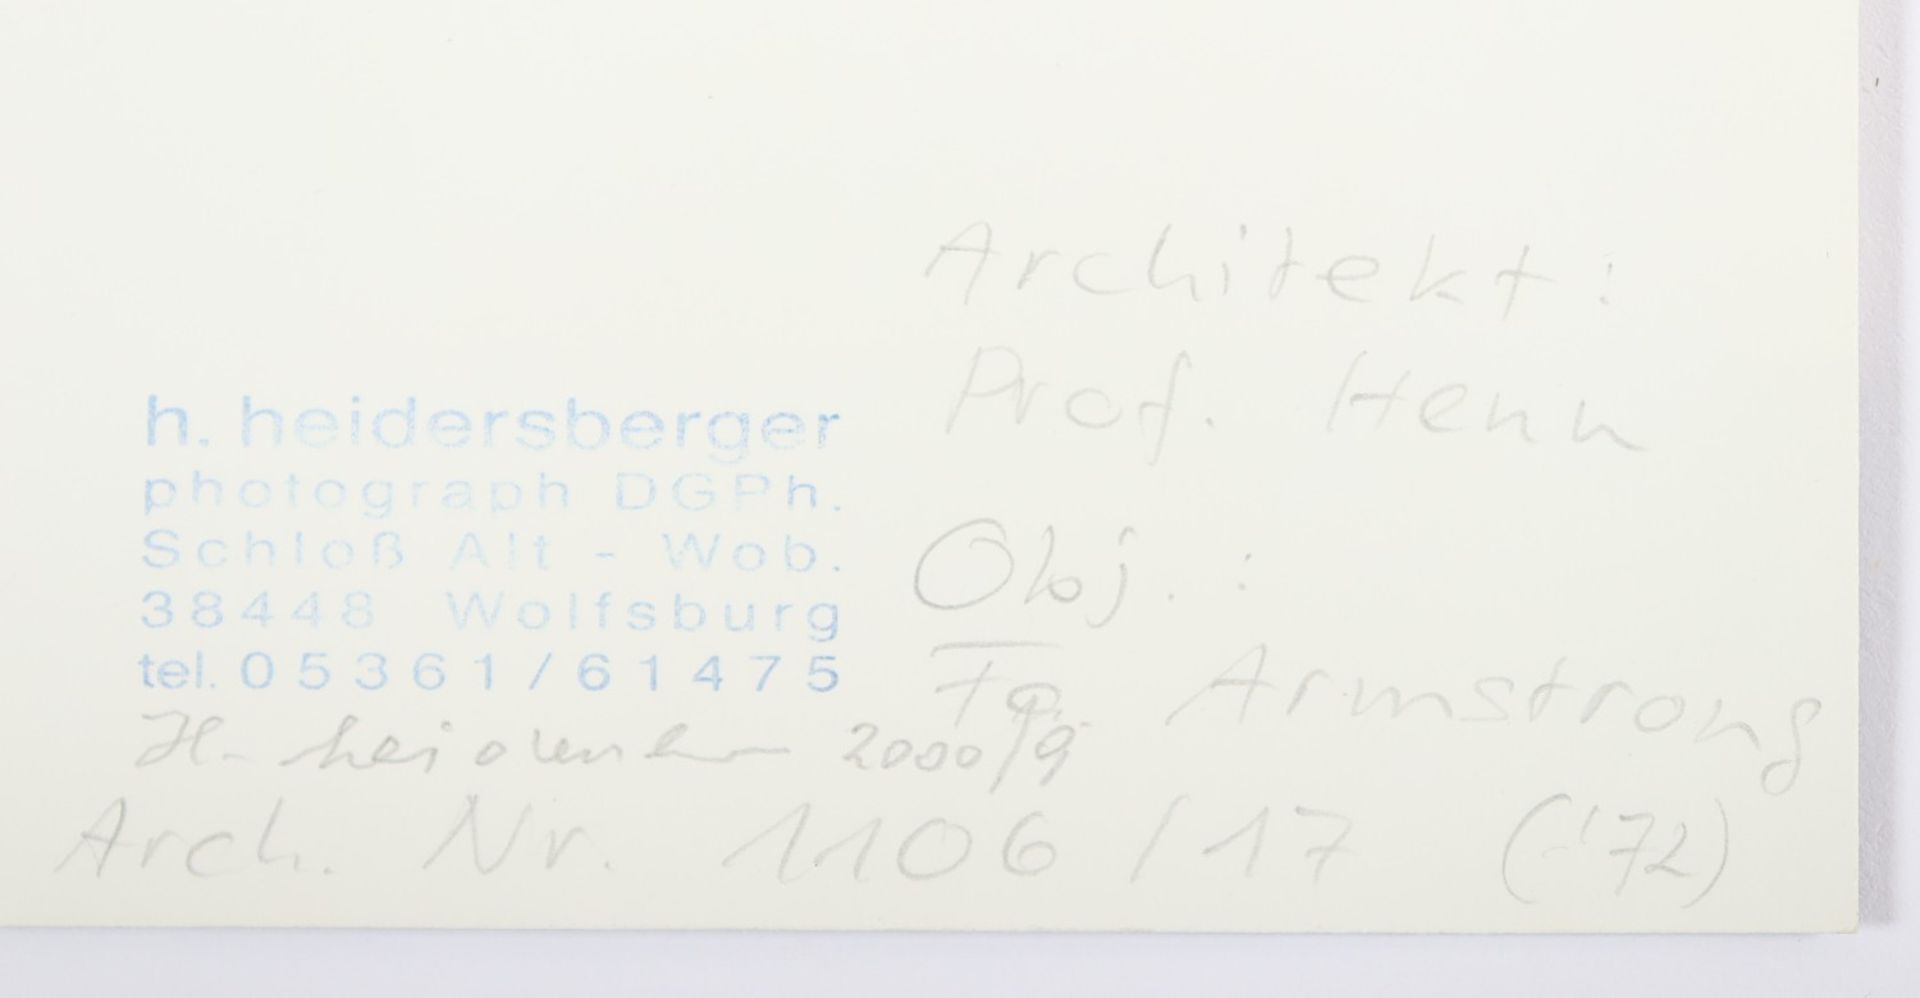 Architekt:
Prof. Henn
Obj.:
Fa. Armstrong
h. heidersberger
photograph DGPh.
Schloß Alt - Wob.
38448 Wolfsburg
tel. 05361/61475
H. heidersberger 2000/9
Arch. Nr. 1106/17 ('72)